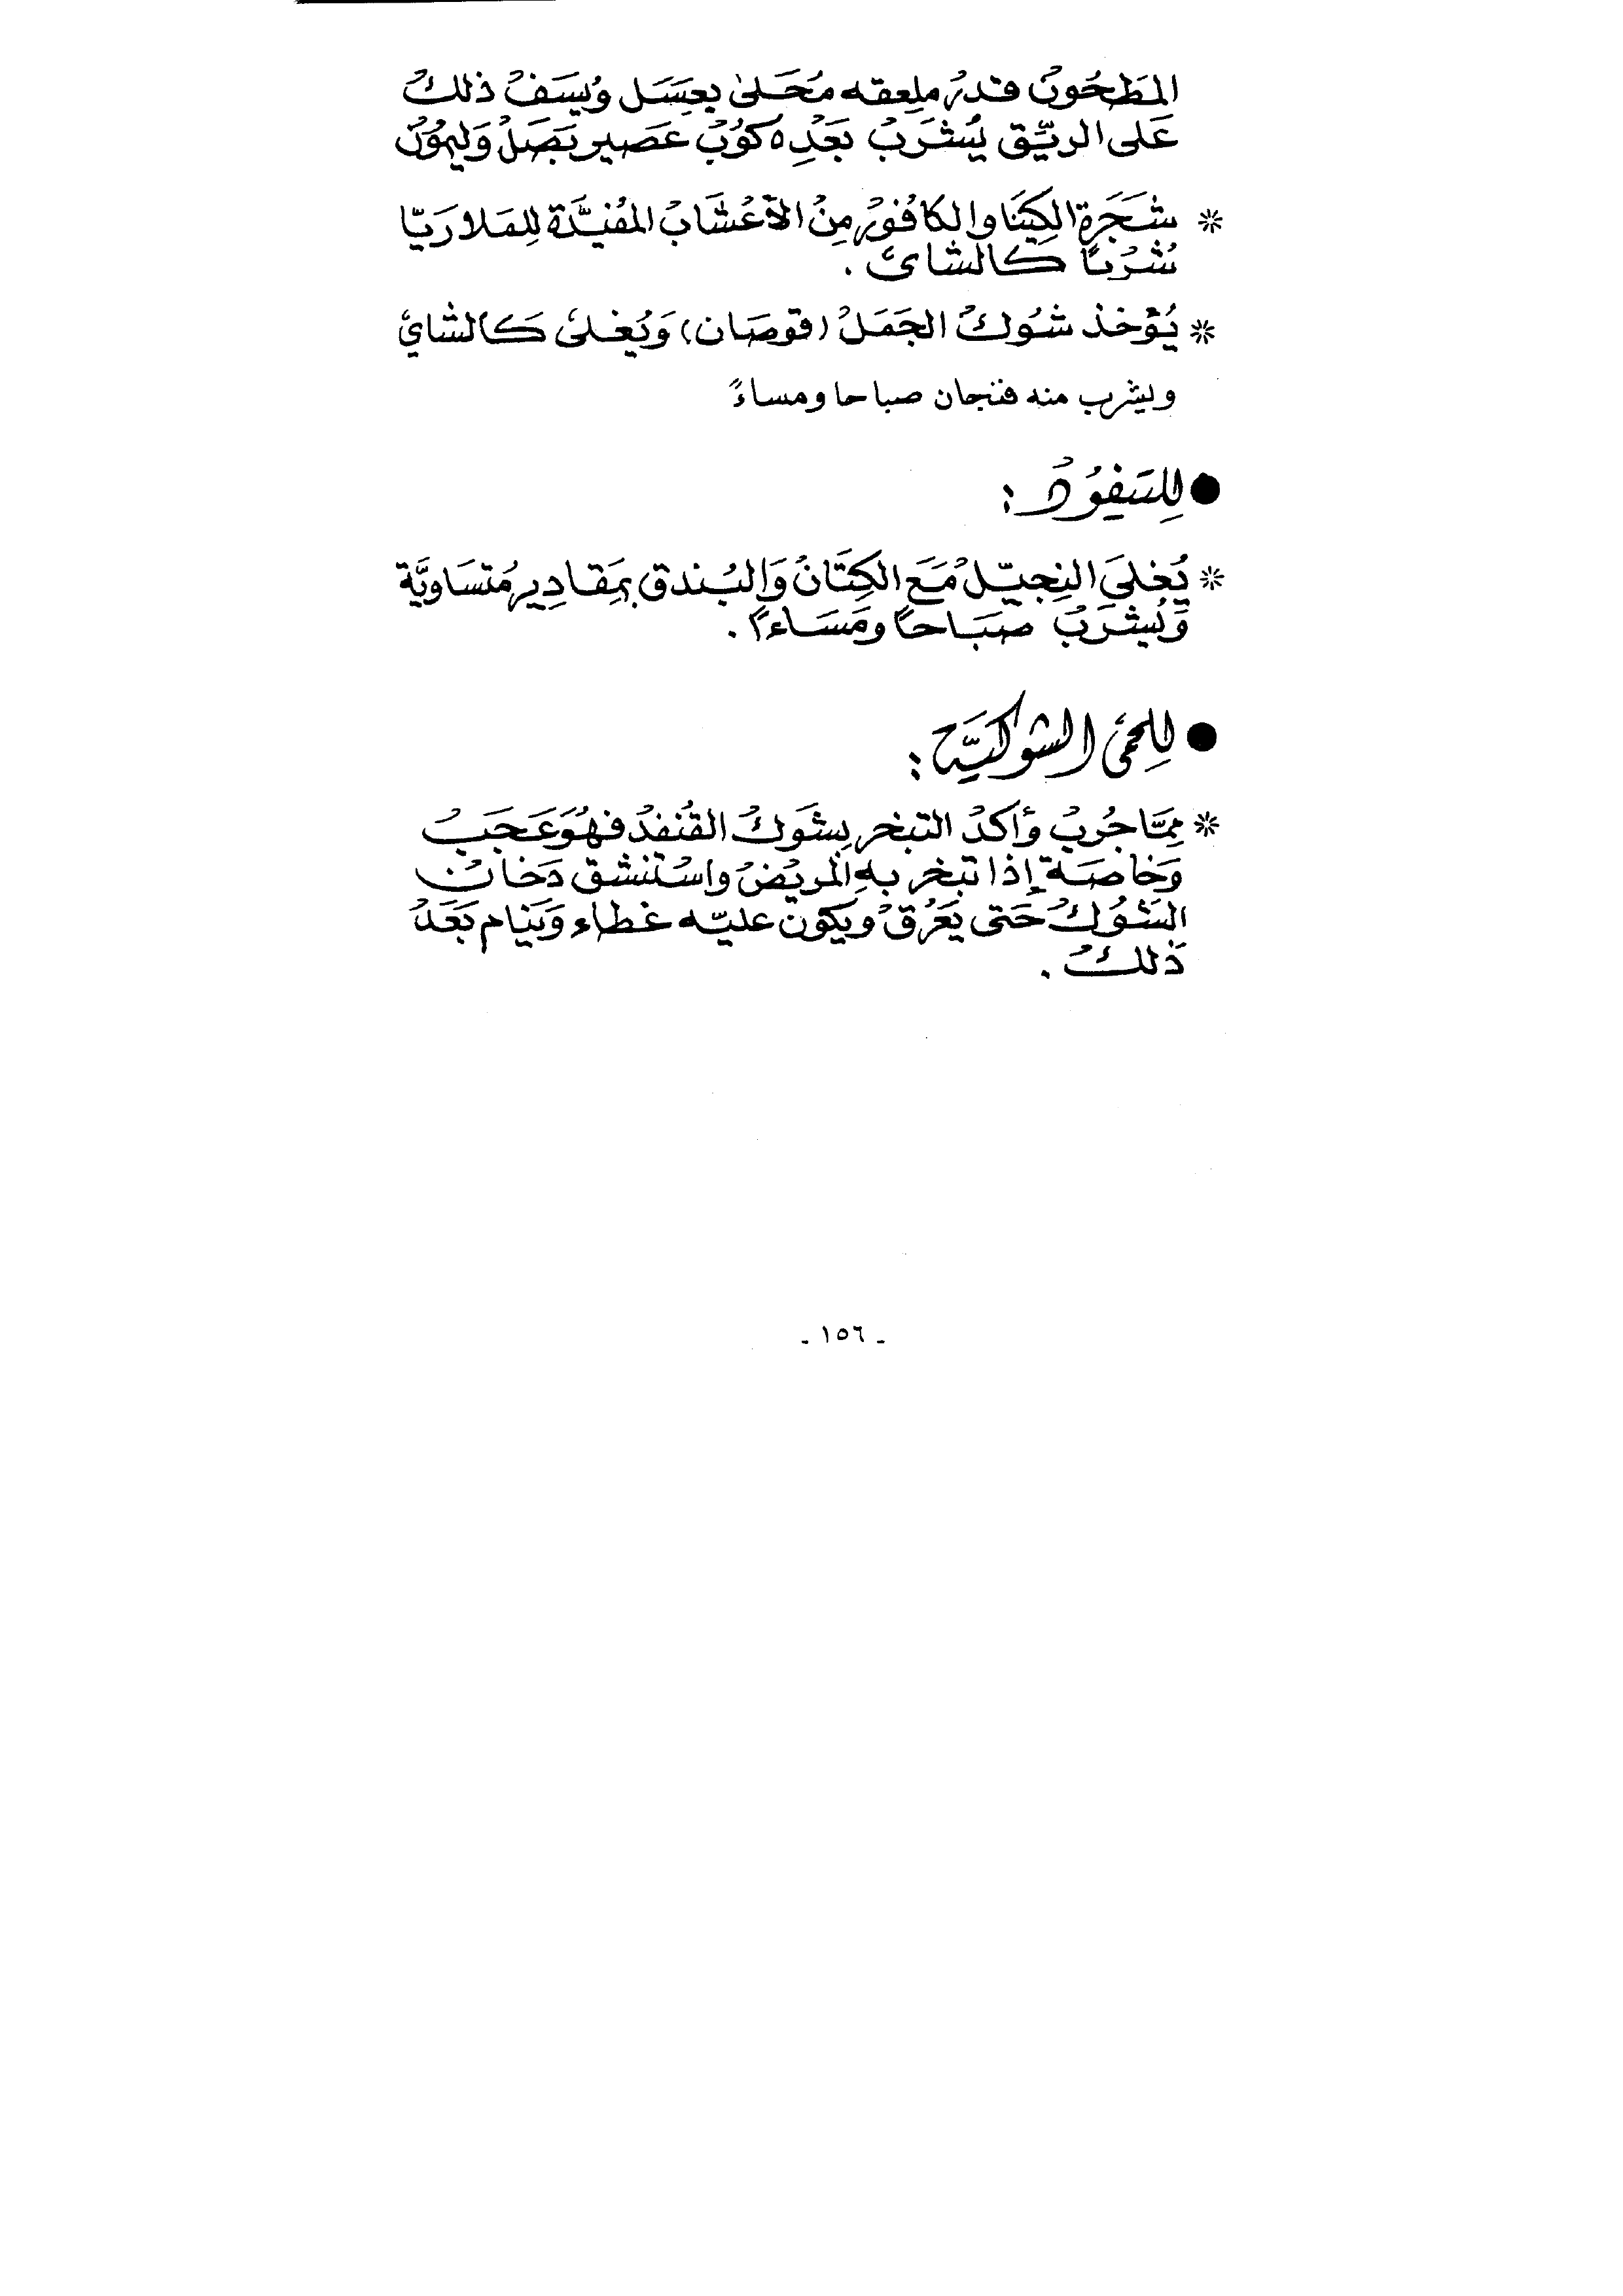 المَطحُونْ قدرْ ملعقه مُحَلى بعسَل ويُسَفْ ذلكْ
عَلى الريّق يُشرَبْ بَعَدِه كوُبْ عَصير بَصَلْ وَليمُونْ
* شَجَرة الكِينَا والكافُورْ مِنْ الأعْشَابْ المفُيدَّة لِلمَلارَيّا
شُرْبًا كالشاى .
* يُؤخذ شوُكْ الجَمَلْ (قوصَان) وَيُغلىَ كَالشايَ
ويشرب منه فنجان صباحا ومساءً
● لِلتيفوُدْ :
* يُغلىَ النِجيّلْ مَعَ الكِتَانْ وَالبُندق بمَقادِير مُتسَاويَّة
وَيُشرَبْ صَبَاحًا ومَسَاءًا .
● لِلحمىَ الشوكيَّة :
* مِمَّا جُربْ وأكدْ التبخر بِشوَكْ القنُفدْ فهوَُ عَجَبْ
وَخاصَة إذا تبخر بهِ المريُضْ واسْتنشق دَخانْ
الشوُكْ حَتى يَعَرُقْ ويَكونْ عليّه غطاء وَينَام بَعَدْ
ذَلكْ .
- ١٥٦ -